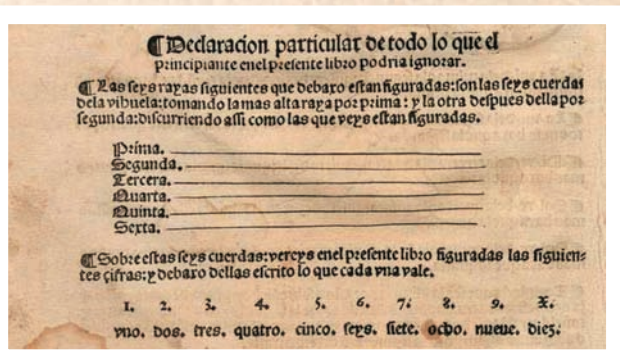 ¶ Declaracion particular de todo lo que el
principiante enel presente libro podria ignorar.
¶ Las seys rayas siguientes que debaxo estan figuradas: son las seys cuerdas
dela vihuela: tomando la mas alta raya por prima: y la otra despues della por
segunda: discurriendo assi como las que veys estan figuradas.
Prima.
Segunda.
Tercera.
Quarta.
Quinta.
Sexta.
¶ Sobre estas seys cuerdas: vereys enel presente libro figuradas las siguien=
tes çifras: y debaxo dellas escrito lo que cada vna vale.
1. 2. 3. 4. 5. 6. 7. 8. 9. X.
vno. dos. tres. quatro. cinco. seys. siete. ocho. nueue. diez.